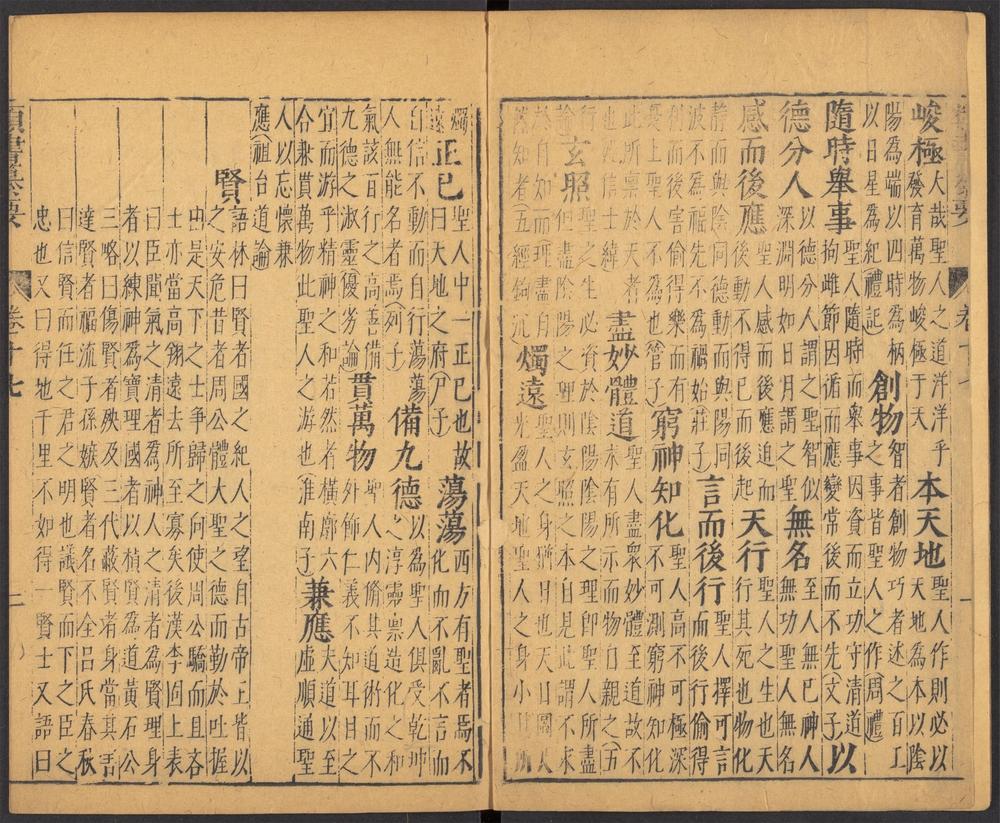 峻極大哉聖人之道洋洋乎發育萬物峻極于天本天地聖人作則必以天地為本以陰
陽為端以四時為柄以日星為紀禮記創物智者創物巧者述之百工之事皆聖人之作周禮
隨時舉事聖人隨時而舉事因資而立功守清道拘雌節因循而應變常後而不先文子以
德分人以德分人謂之聖智似深淵明如日月謂之聖無名至人無已神人無功聖人無名
感而後應聖人感而後應迫而後動不得已而後起天行聖人之生也天行其死也物化
靜而與陰同德動而與陽同波不為福先不為禍始莊子言而後行聖人擇可言而後行偷得
利而後害偷得樂而後有上聖人不為也管子窮神知化聖人高不可極深不可測窮神知化
此所禀於天者也信士緯盡妙體道聖人盡衆妙體至道故不求有所示而物自親之五
行聖之生必資於陰陽陰陽之理即聖人所盡論玄照但盡陰陽之理則玄照之本自見此謂不求
自知而理盡自然知者五經鉤沉燭遠聖人之身猶日也天日圓尺光盈天地聖人之身小其所
燭遠正已聖人中一正已也故曰天地之府尹子蕩蕩西方有聖者焉不化而不亂不言而
自信不動而自行蕩蕩人無能名者焉列子備九德以為聖人俱受乾坤之淳靈禀造化之和
氣該百行之高善備九德之淑靈優劣論貫萬物聖人内脩其道術而不外飾仁義不知耳目之
宜而游乎精神之和若然者橫廓六合兼貫萬物此聖人之游也淮南子兼應夫道以至虛順通聖
人以忘懷兼應祖台道論
賢語林曰賢者國之紀人之望自古帝王皆以之安危昔者周公體大聖之德而勤於吐握
由是天下之士爭歸之向使周公驕而且吝士亦當高翔遠去所至寡矣後漢李固上表
曰臣聞氣之清者為神人之清者為賢理身者以練神為寶理國者以積賢為道黃石公
三略曰傷賢者殃及三代蔽賢者身當其害達賢者福流子孫嫉賢者名不全呂氏春秋
曰信賢而任之君之明也讓賢而下之臣之忠也又曰得地千里不如得一賢士又語曰
卷十七
二